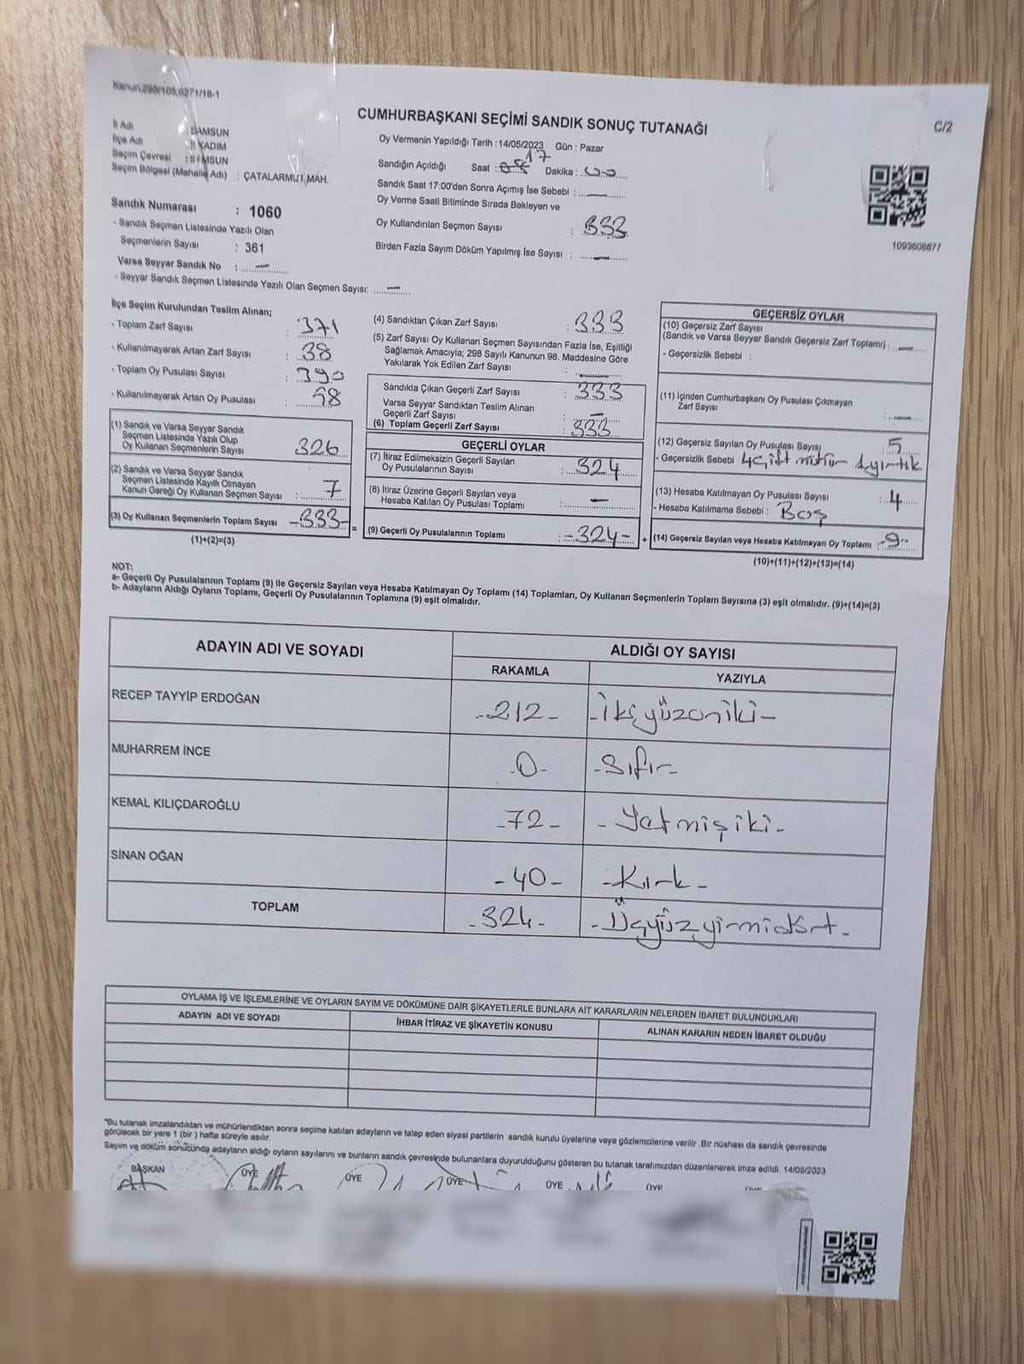 Kanun:298/105,6271/18-1
CUMHURBAŞKANI SEÇİMİ SANDIK SONUÇ TUTANAĞI
C/2
İl Adı : SAMSUN
İlçe Adı : İLKADIM
Seçim Çevresi : SAMSUN
Seçim Bölgesi (Mahalle Adı) : ÇATALARMUT MAH.
Sandık Numarası : 1060
- Sandık Seçmen Listesinde Yazılı Olan
Seçmenlerin Sayısı : 361
Varsa Seyyar Sandık No : —
- Seyyar Sandık Seçmen Listesinde Yazılı Olan Seçmen Sayısı: —
Oy Vermenin Yapıldığı Tarih : 14/05/2023 Gün : Pazar
Sandığın Açıldığı Saat : 17 Dakika : 00
Sandık Saat 17:00'den Sonra Açımış İse Sebebi : —
Oy Verme Saati Bitiminde Sırada Bekleyen ve
Oy Kullandırılan Seçmen Sayısı : 333
Birden Fazla Sayım Döküm Yapılmış İse Sayısı : —
1093608677
İlçe Seçim Kurulundan Teslim Alınan;
- Toplam Zarf Sayısı : 371
- Kullanılmayarak Artan Zarf Sayısı : 38
- Toplam Oy Pusulası Sayısı : 390
- Kullanılmayarak Artan Oy Pusulası :
(1) Sandık ve Varsa Seyyar Sandık
Seçmen Listesinde Yazılı Olup
Oy Kullanan Seçmenlerin Sayısı 326
(2) Sandık ve Varsa Seyyar Sandık
Seçmen Listesinde Kayıtlı Olmayan
Kanun Gereği Oy Kullanan Seçmen Sayısı : 7
(3) Oy Kullanan Seçmenlerin Toplam Sayısı -333- =
(1)+(2)=(3)
(4) Sandıktan Çıkan Zarf Sayısı : 333
(5) Zarf Sayısı Oy Kullanan Seçmen Sayısından Fazla İse, Eşitliği
Sağlamak Amacıyla; 298 Sayılı Kanunun 98. Maddesine Göre
Yakılarak Yok Edilen Zarf Sayısı : —
Sandıkta Çıkan Geçerli Zarf Sayısı : 333
Varsa Seyyar Sandıktan Teslim Alınan
Geçerli Zarf Sayısı : —
(6) Toplam Geçerli Zarf Sayısı : 333
GEÇERLİ OYLAR
(7) İtiraz Edilmeksizin Geçerli Sayılan
Oy Pusulalarının Sayısı : 324
(8) İtiraz Üzerine Geçerli Sayılan veya
Hesaba Katılan Oy Pusulası Toplamı : —
(9) Geçerli Oy Pusulalarının Toplamı : -324- +
GEÇERSİZ OYLAR
(10) Geçersiz Zarf Sayısı
(Sandık ve Varsa Seyyar Sandık Geçersiz Zarf Toplamı) : —
- Geçersizlik Sebebi :
(11) İçinden Cumhurbaşkanı Oy Pusulası Çıkmayan
Zarf Sayısı : —
(12) Geçersiz Sayılan Oy Pusulası Sayısı : 5
- Geçersizlik Sebebi 4 çift mühür 1 yırtık
(13) Hesaba Katılmayan Oy Pusulası Sayısı : 4
- Hesaba Katılmama Sebebi : Boş
(14) Geçersiz Sayılan veya Hesaba Katılmayan Oy Toplamı : -9-
(10)+(11)+(12)+(13)=(14)
NOT:
a- Geçerli Oy Pusulalarının Toplamı (9) ile Geçersiz Sayılan veya Hesaba Katılmayan Oy Toplamı (14) Toplamları, Oy Kullanan Seçmenlerin Toplam Sayısına (3) eşit olmalıdır. (9)+(14)=(3)
b- Adayların Aldığı Oyların Toplamı, Geçerli Oy Pusulalarının Toplamına (9) eşit olmalıdır.
ADAYIN ADI VE SOYADI
ALDIĞI OY SAYISI
RAKAMLA YAZIYLA
RECEP TAYYİP ERDOĞAN -212- -İkiyüzoniki-
MUHARREM İNCE -0- -Sıfır-
KEMAL KILIÇDAROĞLU -72- -Yetmişiki-
SİNAN OĞAN -40- -Kırk-
TOPLAM -324- -Üçyüzyirmidört-
OYLAMA İŞ VE İŞLEMLERİNE VE OYLARIN SAYIM VE DÖKÜMÜNE DAİR ŞİKAYETLERLE BUNLARA AİT KARARLARIN NELERDEN İBARET BULUNDUKLARI
ADAYIN ADI VE SOYADI İHBAR İTİRAZ VE ŞİKAYETİN KONUSU ALINAN KARARIN NEDEN İBARET OLDUĞU
"Bu tutanak imzalandıktan ve mühürlendikten sonra seçime katılan adayların ve talep eden siyasi partilerin sandık kurulu üyelerine veya gözlemcilerine verilir. Bir nüshası da sandık çevresinde
görülecek bir yere 1 (bir) hafta süreyle asılır.
Sayım ve döküm sonucunda adayların aldığı oyların sayılarını ve bunların sandık çevresinde bulunanlara duyurulduğunu gösteren bu tutanak tarafımızdan düzenlenerek imza edildi. 14/05/2023
BAŞKAN ÜYE ÜYE ÜYE ÜYE ÜYE